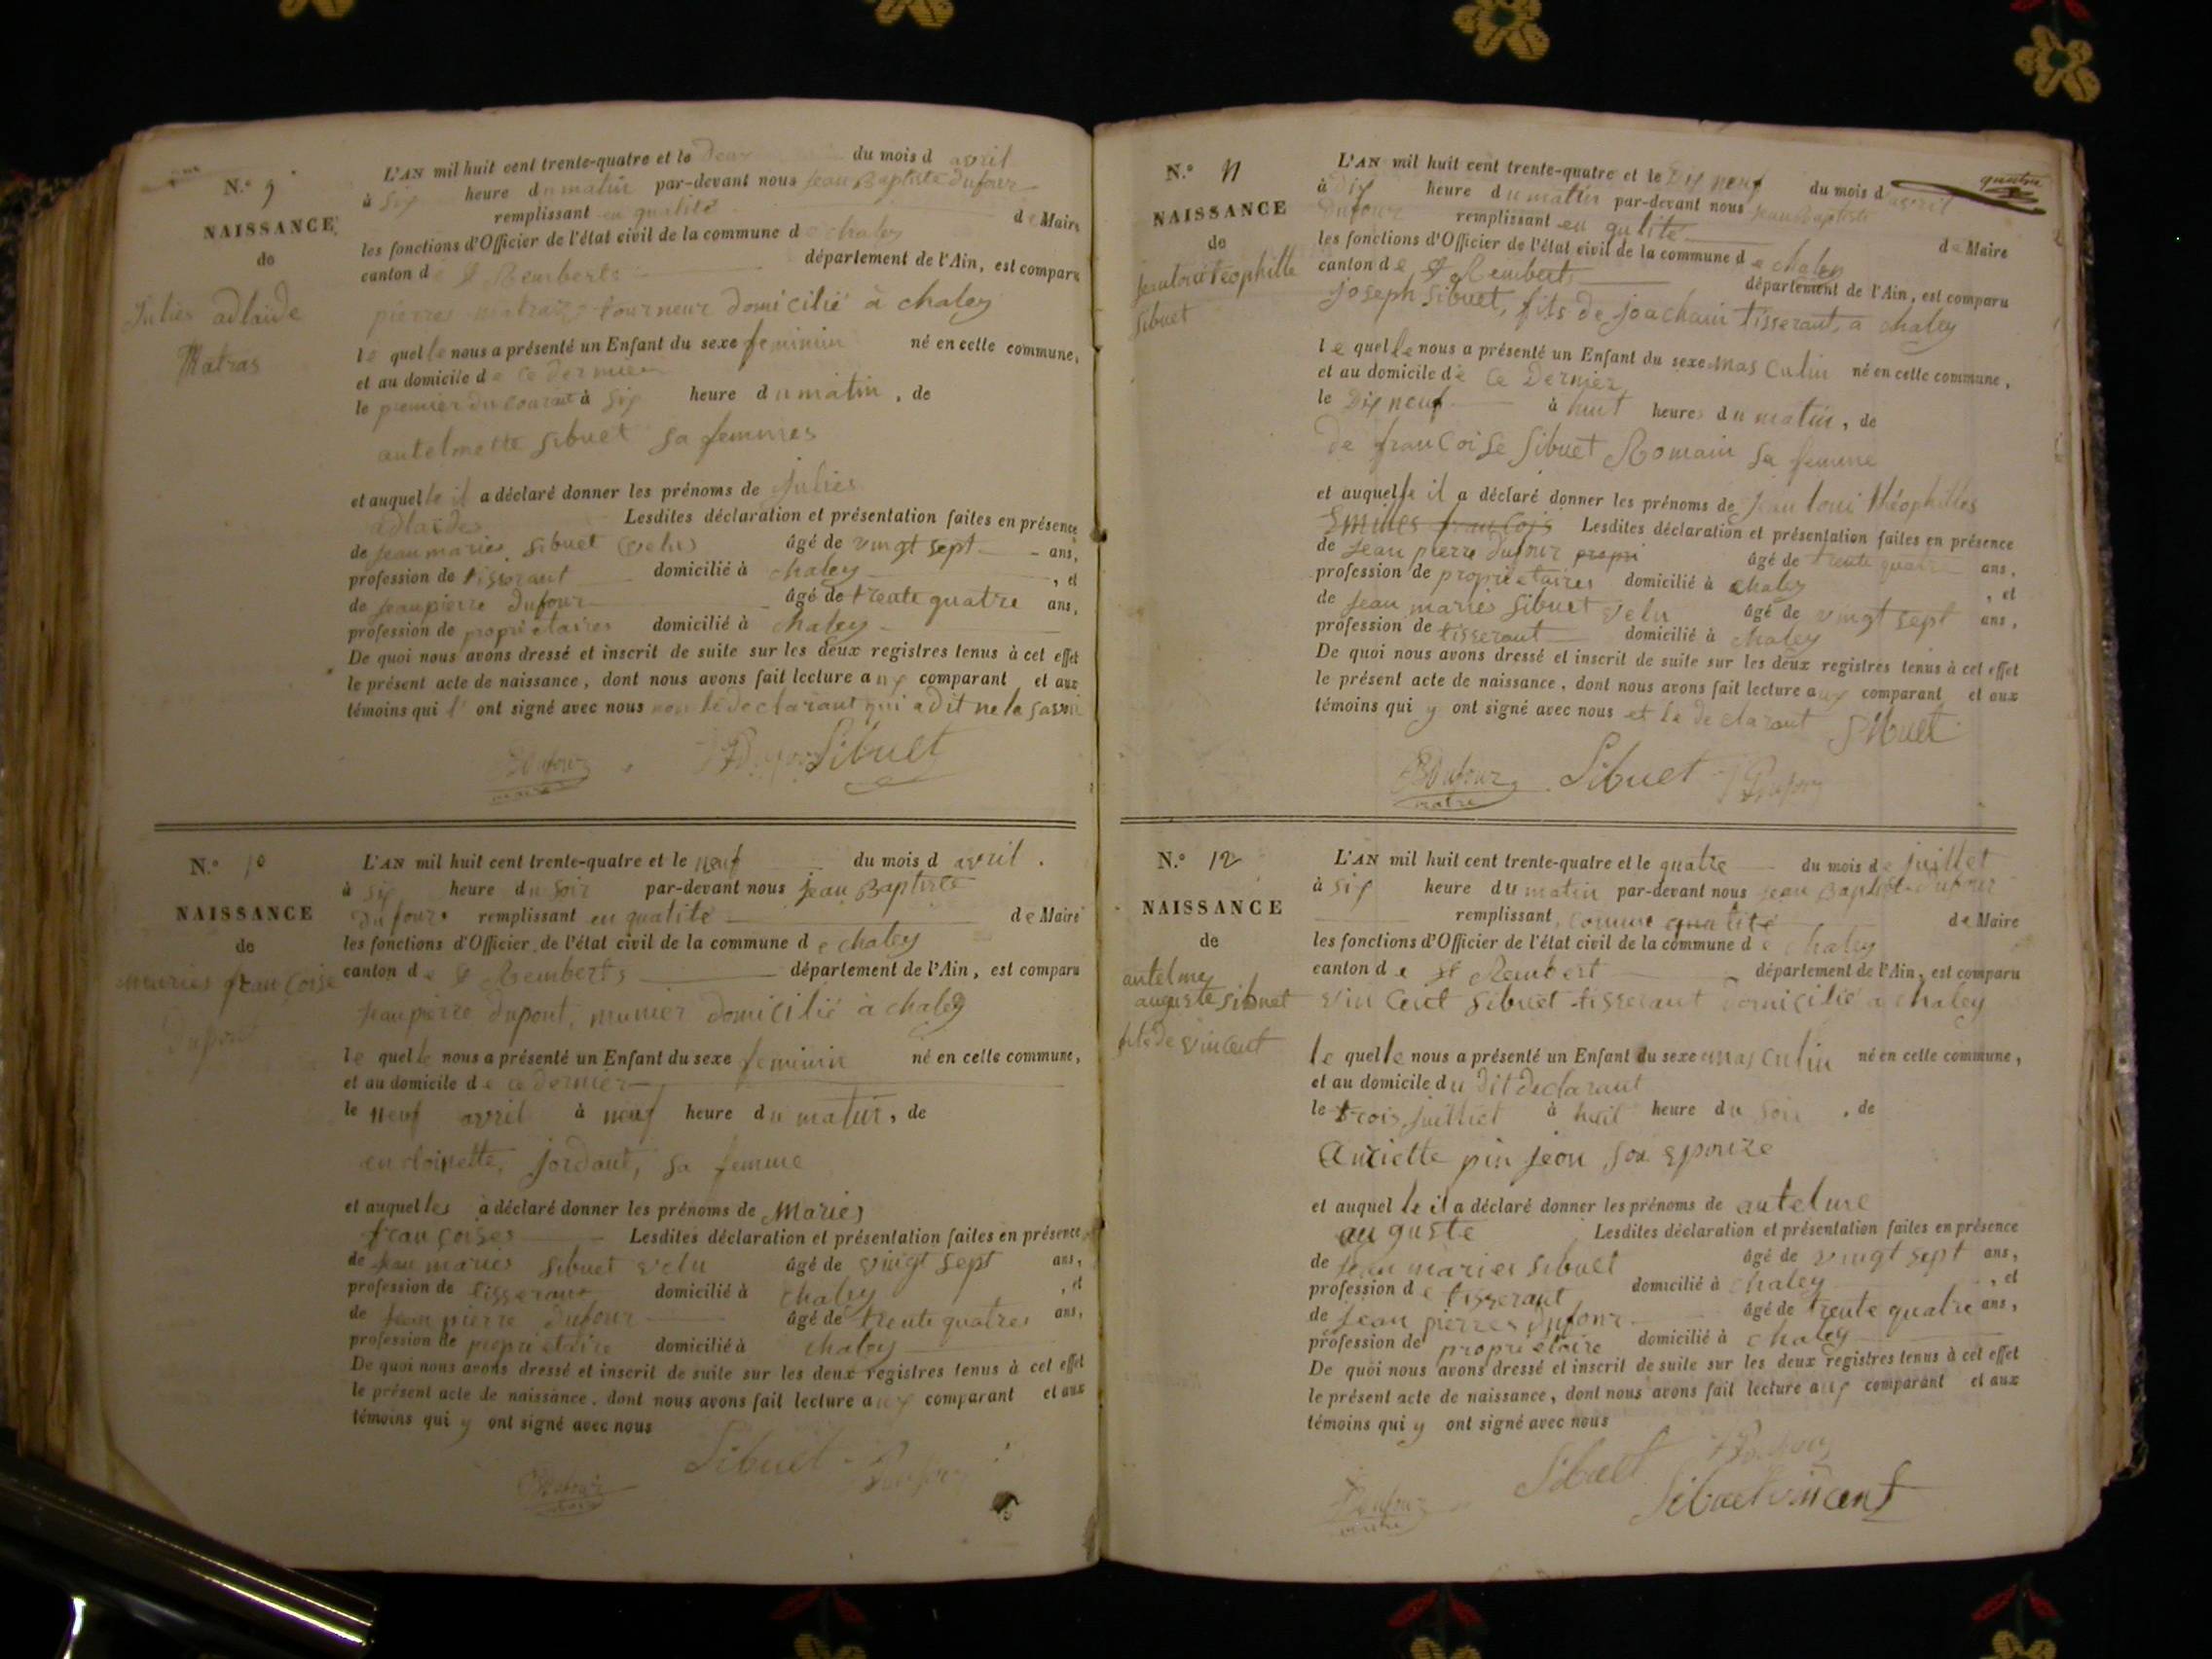 N.° 9
NAISSANCE
de
Julies adlaide
Matras
L'AN mil huit cent trente-quatre et le Deux du mois d avril
à six heure du matin par-devant nous jean Baptiste dufour
remplissant en qualité de Maire
les fonctions d'Officier de l'état civil de la commune de chaley
canton de St Remberts département de l'Ain, est comparu
pierres matraz tourneur domicilié à chaley
le quel le nous a présenté un Enfant du sexe feminin né en celle commune,
et au domicile de ce dernier
le premier du courant à six heure du matin, de
antelmette sibuet sa femmes
et auquel le il a déclaré donner les prénoms de Julies
adlaides Lesdites déclaration et présentation faites en présence
de jean maries Sibuet (velu) âgé de vingt sept ans,
profession de tisserant domicilié à chaley, et
de jean pierre Dufour âgé de trente quatre ans,
profession de propriétaires domicilié à chaley
De quoi nous avons dressé et inscrit de suite sur les deux registres tenus à cet effet
le présent acte de naissance, dont nous avons fait lecture aux comparant et aux
témoins qui ont signé avec nous non le declarant qui a dit ne le savoir
Dufour Sibuet
maire
N.° 10
NAISSANCE
de
maries francoise
Dupont
L'AN mil huit cent trente-quatre et le neuf du mois d avril.
à six heure du soir par-devant nous jean Baptiste
dufour remplissant en qualité de Maire
les fonctions d'Officier de l'état civil de la commune de chaley
canton de St Remberts département de l'Ain, est comparu
jean pierre dupont, munier domicilié à chaley
le quel le nous a présenté un Enfant du sexe feminin né en celle commune,
et au domicile de ce dernier
le neuf avril à neuf heure du matin, de
jordant, sa femme
et auquel les a déclaré donner les prénoms de Maries
françoises Lesdites déclaration et présentation faites en présence
de jean maries Sibuet velu âgé de vingt sept ans,
profession de tisserant domicilié à chaley, et
de jean pierre Dufour âgé de trente quatres ans,
profession de propriétaire domicilié à chaley
De quoi nous avons dressé et inscrit de suite sur les deux registres tenus à cet effet
le présent acte de naissance, dont nous avons fait lecture aux comparant et aux
témoins qui y ont signé avec nous
Sibuet
Dufour
quatre
N.° 11
NAISSANCE
de
jean loui téophille
Sibuet
L'AN mil huit cent trente-quatre et le Dix neuf du mois d avril
à Dix heure du matin par-devant nous jean Baptiste
Dufour remplissant en qulité de Maire
les fonctions d'Officier de l'état civil de la commune de chaley
canton de St Rembert département de l'Ain, est comparu
joseph Sibuet, fils de joachain tisserant, a chaley
le quel le nous a présenté un Enfant du sexe masculin né en celle commune,
et au domicile de ce Dernier
le Dix neuf à huit heures du matin, de
de francoise Sibuet Romain sa femme
et auquel le il a déclaré donner les prénoms de jean loui théophilles
Emilles francois Lesdites déclaration et présentation faites en présence
de jean pierre dufour propri âgé de trente quatre ans,
profession de propriétaires domicilié à chaley, et
de jean maries Sibuet velu âgé de vingt sept ans,
profession de tisserant domicilié à chaley
De quoi nous avons dressé et inscrit de suite sur les deux registres tenus à cet effet
le présent acte de naissance, dont nous avons fait lecture aux comparant et aux
témoins qui y ont signé avec nous et le declarant Sibuet
Dufour Sibuet
maire
N.° 12
NAISSANCE
de
antelme
auguste sibuet
fils de vincent
L'AN mil huit cent trente-quatre et le quatre du mois de juillet
à six heure du matin par-devant nous jean Baptist dufour
remplissant comme qualité de Maire
les fonctions d'Officier de l'état civil de la commune de chaley
canton de St Rembert département de l'Ain, est comparu
vincent Sibuet tisserant domicilié a chaley
le quel le nous a présenté un Enfant du sexe masculin né en celle commune,
et au domicile du dit declarant
le trois juilliet à huit heure du soir, de
pin jeon son epouize
et auquel le il a déclaré donner les prénoms de antelme
auguste Lesdites déclaration et présentation faites en présence
de jean maries Sibuet âgé de vingt sept ans,
profession de tisserant domicilié à chaley, et
de jean pierres dufour âgé de trente quatre ans,
profession de propriétoire domicilié à chaley
De quoi nous avons dressé et inscrit de suite sur les deux registres tenus à cet effet
le présent acte de naissance, dont nous avons fait lecture aux comparant et aux
témoins qui y ont signé avec nous
Sibuet
Dufour Sibuet vincent
maire